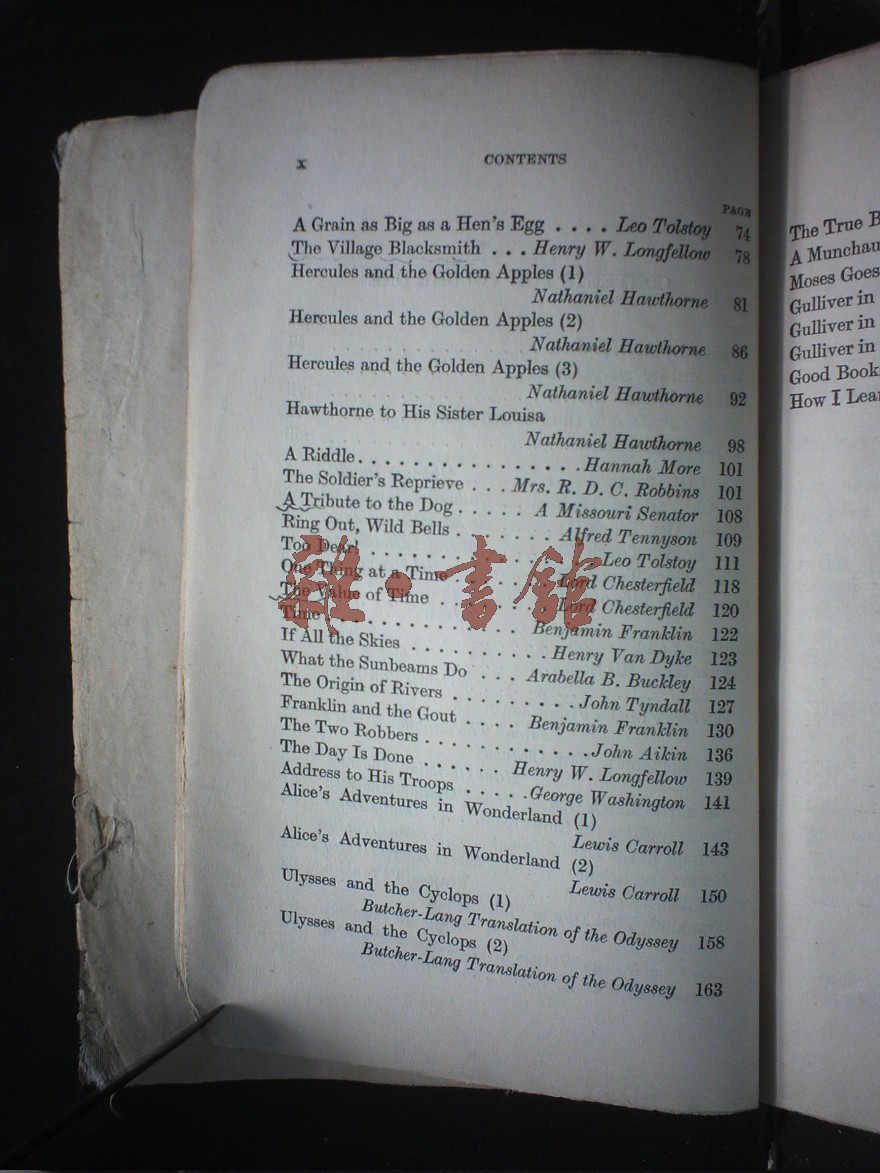 x CONTENTS
PAGE
A Grain as Big as a Hen's Egg . . . . Leo Tolstoy 74
The Village Blacksmith . . . Henry W. Longfellow 78
Hercules and the Golden Apples (1)
Nathaniel Hawthorne 81
Hercules and the Golden Apples (2)
Nathaniel Hawthorne 86
Hercules and the Golden Apples (3)
Nathaniel Hawthorne 92
Hawthorne to His Sister Louisa
Nathaniel Hawthorne 98
A Riddle . . . . . . . . . . . . . . . . Hannah More 101
The Soldier's Reprieve . . . Mrs. R. D. C. Robbins 101
A Tribute to the Dog . . . . . A Missouri Senator 108
Ring Out, Wild Bells . . . . . . . Alfred Tennyson 109
Too Dear! . . . . . . . . . . . . . . . Leo Tolstoy 111
One Thing at a Time . . . . . . Lord Chesterfield 118
The Value of Time . . . . . . . Lord Chesterfield 120
Time . . . . . . . . . . . . . Benjamin Franklin 122
If All the Skies . . . . . . . . . . Henry Van Dyke 123
What the Sunbeams Do . . . Arabella B. Buckley 124
The Origin of Rivers . . . . . . . . . John Tyndall 127
Franklin and the Gout . . . . Benjamin Franklin 130
The Two Robbers . . . . . . . . . . . . . John Aikin 136
The Day Is Done . . . . . . Henry W. Longfellow 139
Address to His Troops . . . . . George Washington 141
Alice's Adventures in Wonderland (1)
Lewis Carroll 143
Alice's Adventures in Wonderland (2)
Lewis Carroll 150
Ulysses and the Cyclops (1)
Butcher-Lang Translation of the Odyssey 158
Ulysses and the Cyclops (2)
Butcher-Lang Translation of the Odyssey 163
The True B
A Munchau
Moses Goes
Gulliver in
Gulliver in
Gulliver in
Good Book
How I Lear
雜·書館